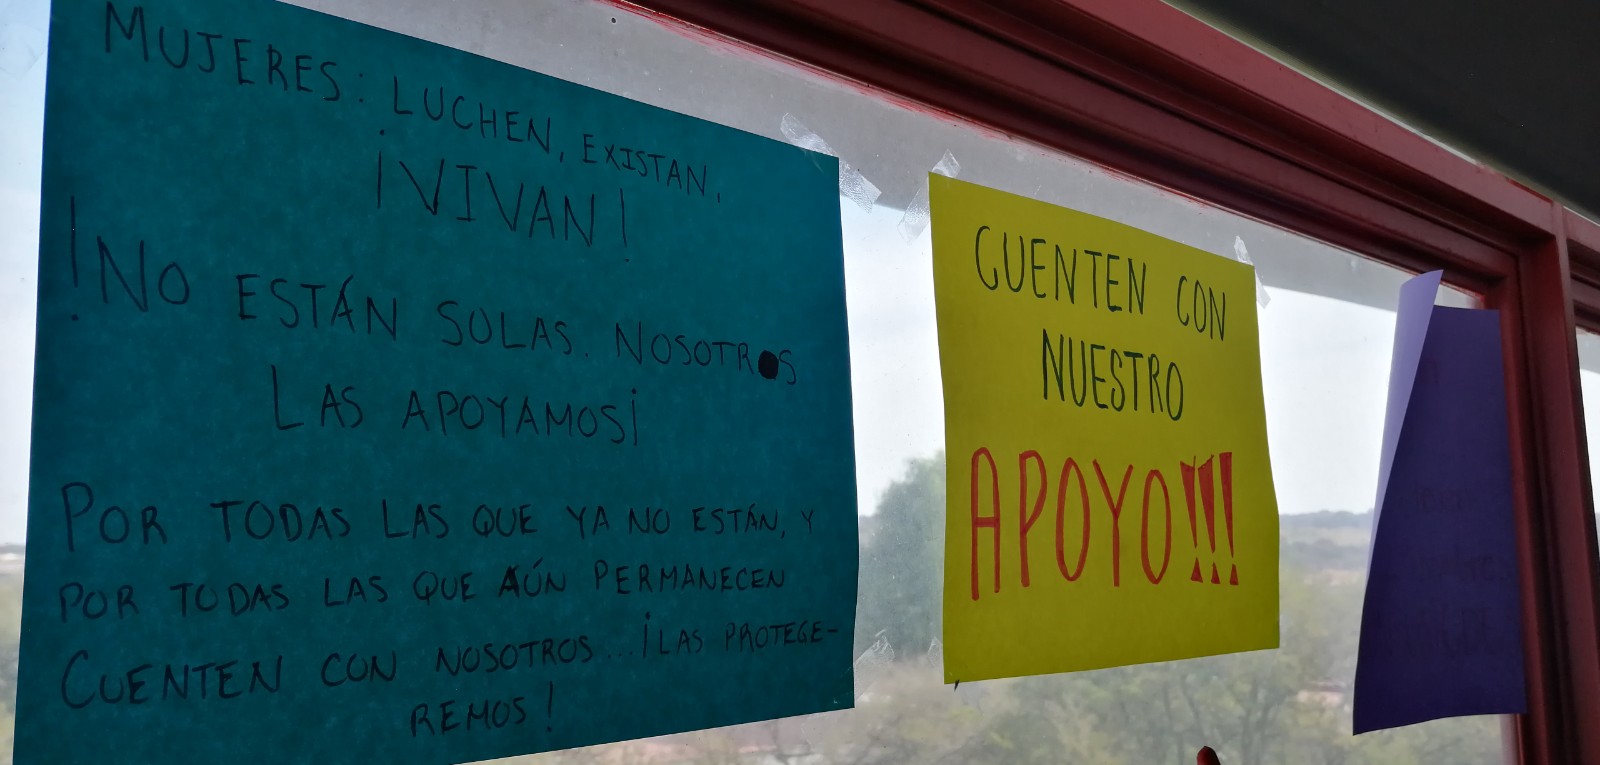 MUJERES: LUCHEN, EXISTAN,
¡VIVAN!
!NO ESTÁN SOLAS. NOSOTROS
LAS APOYAMOS¡
POR TODAS LAS QUE YA NO ESTÁN, Y
POR TODAS LAS QUE AÚN PERMANECEN
CUENTEN CON NOSOTROS... ¡LAS PROTEGE-
REMOS!
CUENTEN CON
NUESTRO
APOYO!!!